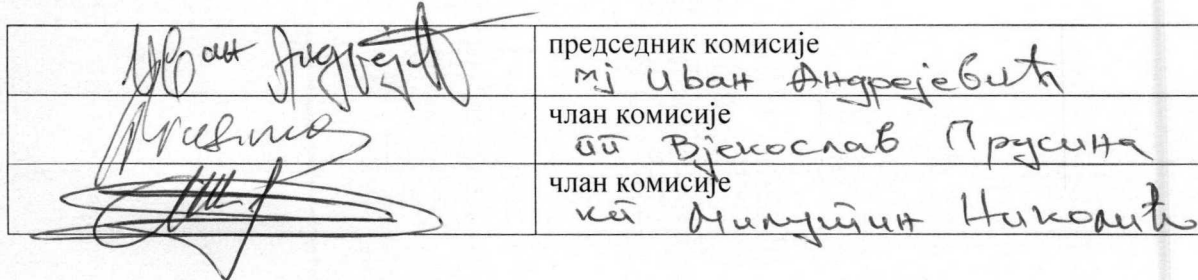 Иван Андрејевић
председник комисије
мј Иван Андрејевић
члан комисије
пп Вјекослав Прусина
члан комисије
кп Милутин Николић